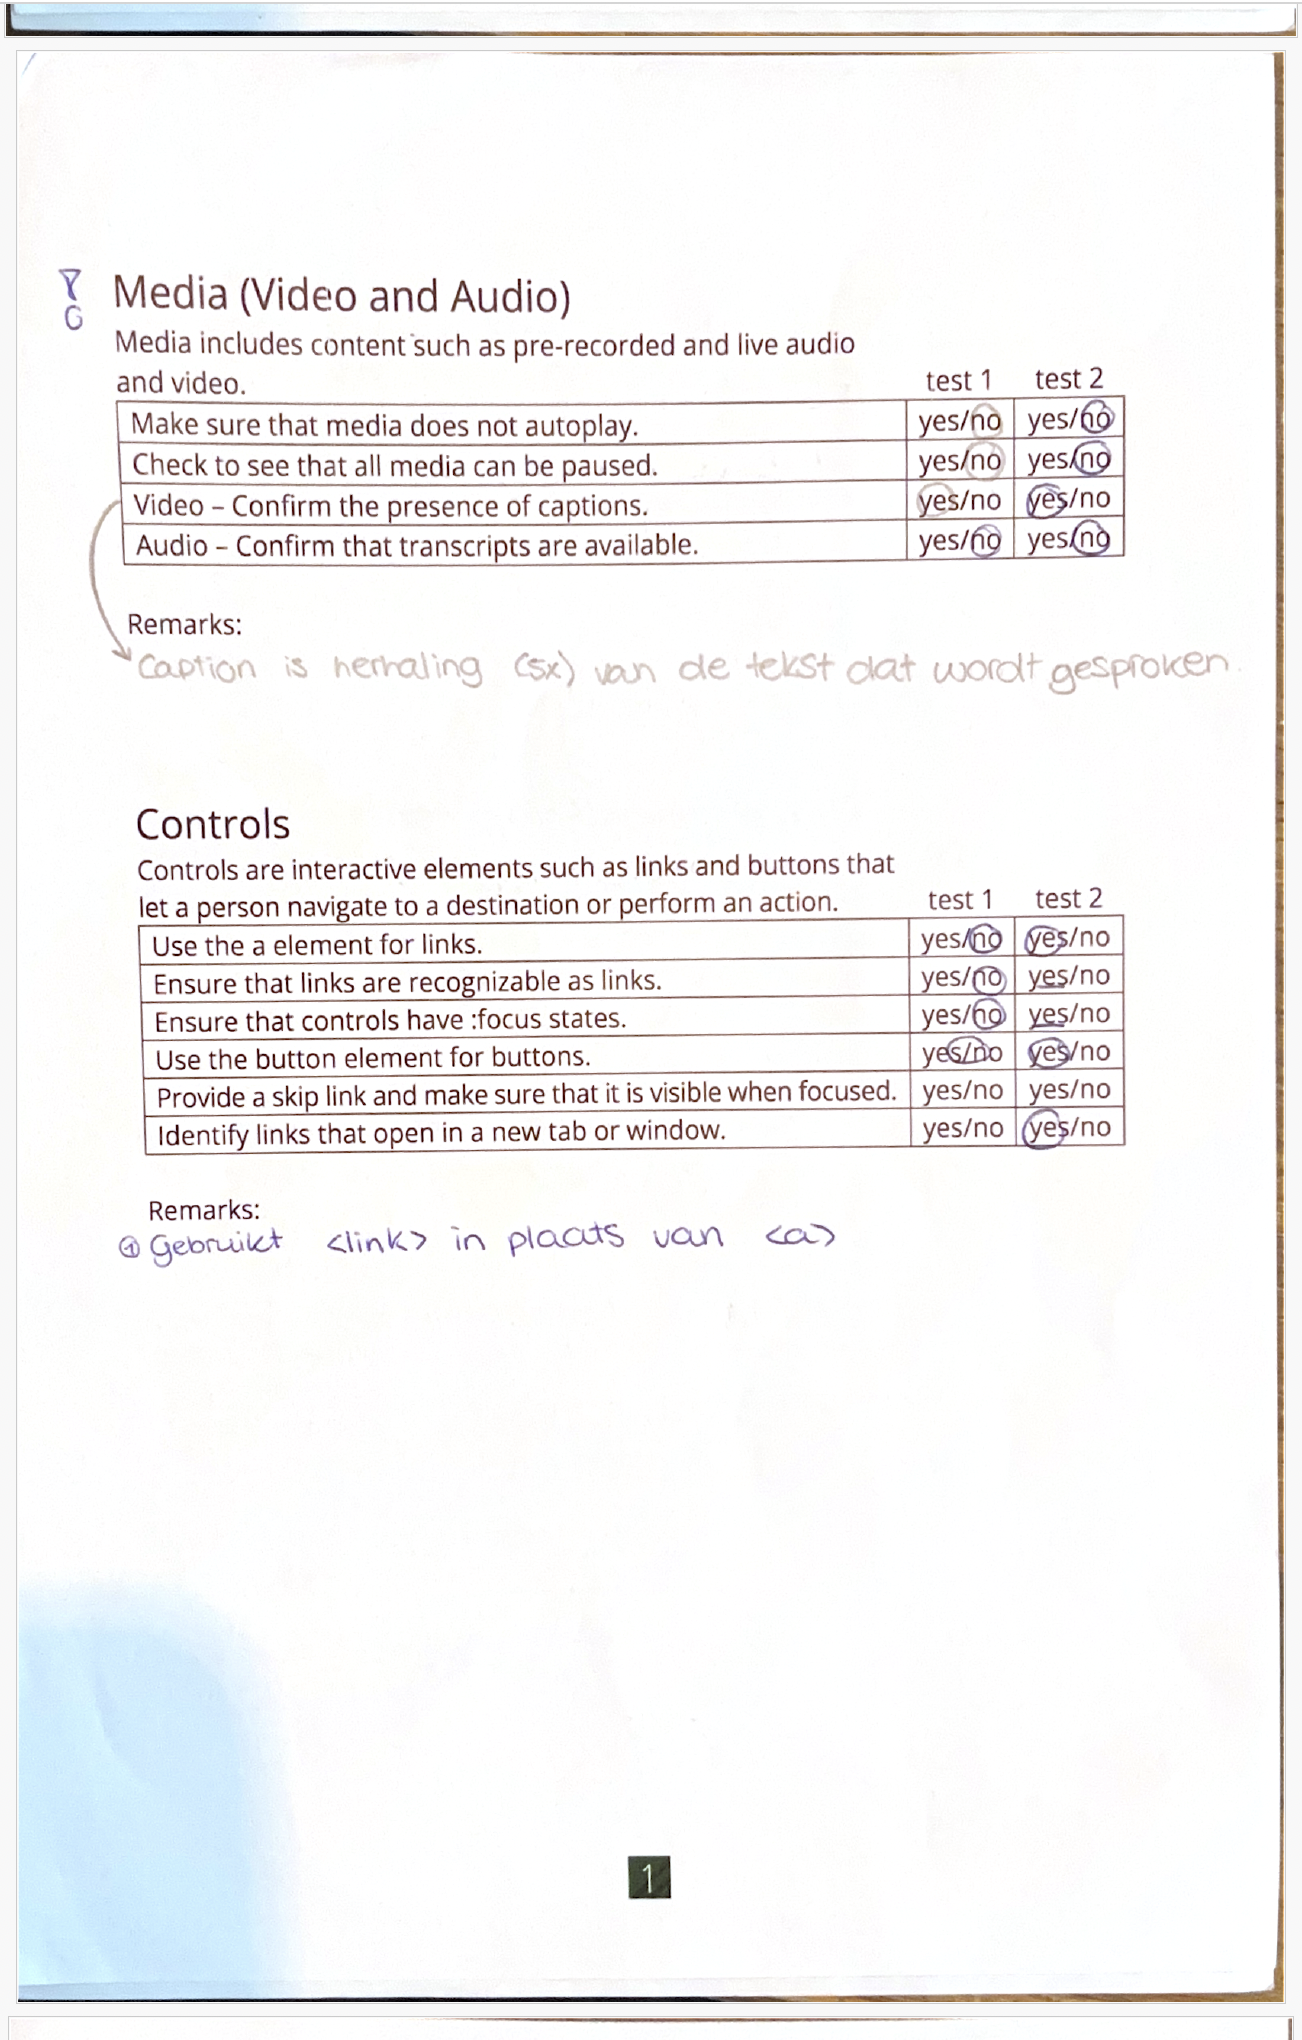 Media (Video and Audio)
G
Media includes content such as pre-recorded and live audio
and video. test 1 test 2
Make sure that media does not autoplay. yes/no yes/no
Check to see that all media can be paused. yes/no yes/no
Video – Confirm the presence of captions. yes/no yes/no
Audio – Confirm that transcripts are available. yes/no yes/no
Remarks:
Caption is herhaling (5x) van de tekst dat wordt gesproken.
Controls
Controls are interactive elements such as links and buttons that
let a person navigate to a destination or perform an action. test 1 test 2
Use the a element for links. yes/no yes/no
Ensure that links are recognizable as links. yes/no yes/no
Ensure that controls have :focus states. yes/no yes/no
Use the button element for buttons. yes/no yes/no
Provide a skip link and make sure that it is visible when focused. yes/no yes/no
Identify links that open in a new tab or window. yes/no yes/no
Remarks:
① Gebruikt <link> in plaats van <a>
1